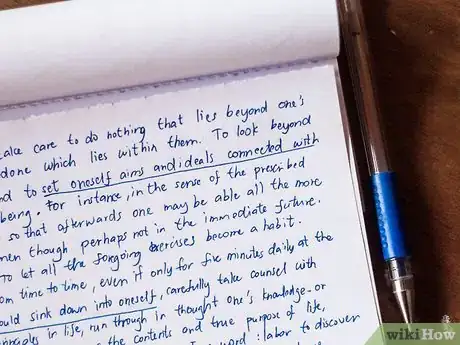 take care to do nothing that lies beyond one's
done which lies within them. To look beyond
nd to set oneself aims and ideals connected with
being. For instance, in the sense of the prescribed
so that afterwards one may be able all the more
men though perhaps not in the immediate future.
To let all the forgoing exercises become a habit.
om time to time, even if only for five minutes daily at the
ould sink down into oneself, carefully take counsel with
inciples in life, run through in thought one's knowledge-or
the contents and true purpose of life,
word: labor to discover
wikiHow